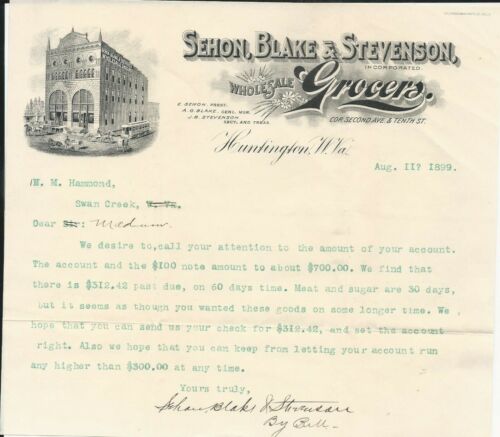 SEHON, BLAKE & STEVENSON,
INCORPORATED.
WHOLESALE Grocers.
E. SEHON, PREST.
A. G. BLAKE, GENL. MGR.
J. B. STEVENSON
SECY. AND TREAS.
COR. SECOND AVE. & TENTH ST.
Huntington, W. Va.
Aug. 11? 1899.
W. M. Hammond,
Swan Creek, W. Va.
Dear Sir: Madam
We desire to, call your attention to the amount of your account.
The account and the $100 note amount to about $700.00. We find that
there is $312.42 past due, on 60 days time. Meat and sugar are 30 days,
but it seems as though you wanted these goods on some longer time. We
hope that you can send us your check for $312.42, and set the account
right. Also we hope that you can keep from letting your account run
any higher than $300.00 at any time.
Yours truly,
Sehon, Blake & Stevenson
By Bill